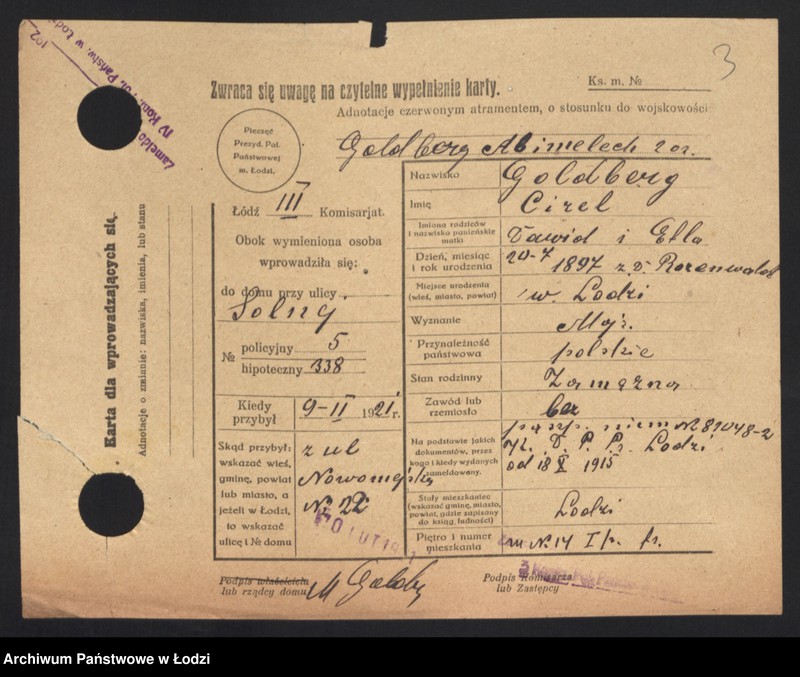 102
IV Kom. Pol. Państw. w Łodzi
Zameldo
3
Zwraca się uwagę na czytelne wypełnienie karty.
Ks. m. №
Adnotacje czerwonym atramentem, o stosunku do wojskowości
Goldberg Abimelech
Karta dla wprowadzających się.
Adnotacje o zmianie: nazwiska, imienia, lub stanu
Pieczęć
Prezyd. Pol.
Państwowej
m. Łodzi.
Łódź III Komisarjat.
Obok wymieniona osoba
wprowadziła się:
do domu przy ulicy
Solny
№ policyjny 5
hipoteczny 338
Kiedy przybył 9-II 1921 r.
Skąd przybył:
wskazać wieś,
gminę, powiat
lub miasto, a
jeżeli w Łodzi,
to wskazać
ulicę i № domu
z ul
Nowomejska
№ 22
10 LUT 19
Nazwisko Goldberg
Imię Cirel
Imiona rodziców
i nazwisko panieńskie
matki
Dawid i Ella
Dzień, miesiąc
i rok urodzenia
20-7 1897 z D. Rozenwald
Miejsce urodzenia
(wieś, miasto, powiat)
w. Lodzi
Wyznanie Mojż.
Przynależność
państwowa
polskie
Stan rodzinny Zamężna
Zawód lub
rzemiosło
bez
Na podstawie jakich
dokumentów, przez
kogo i kiedy wydanych
zameldowany.
pasp. niem № 81048-2
D. P. P. Lodzi
od 18 X 1915
Stały mieszkaniec
(wskazać gminę, miasto,
powiat, gdzie zapisany
do ksiąg ludności)
Lodzi
Piętro i numer
mieszkania
m № 14 I p. fr.
Podpis właściciela
lub rządcy domu
M Goldb
Podpis Komisarza
lub Zastępcy
Archiwum Państwowe w Łodzi